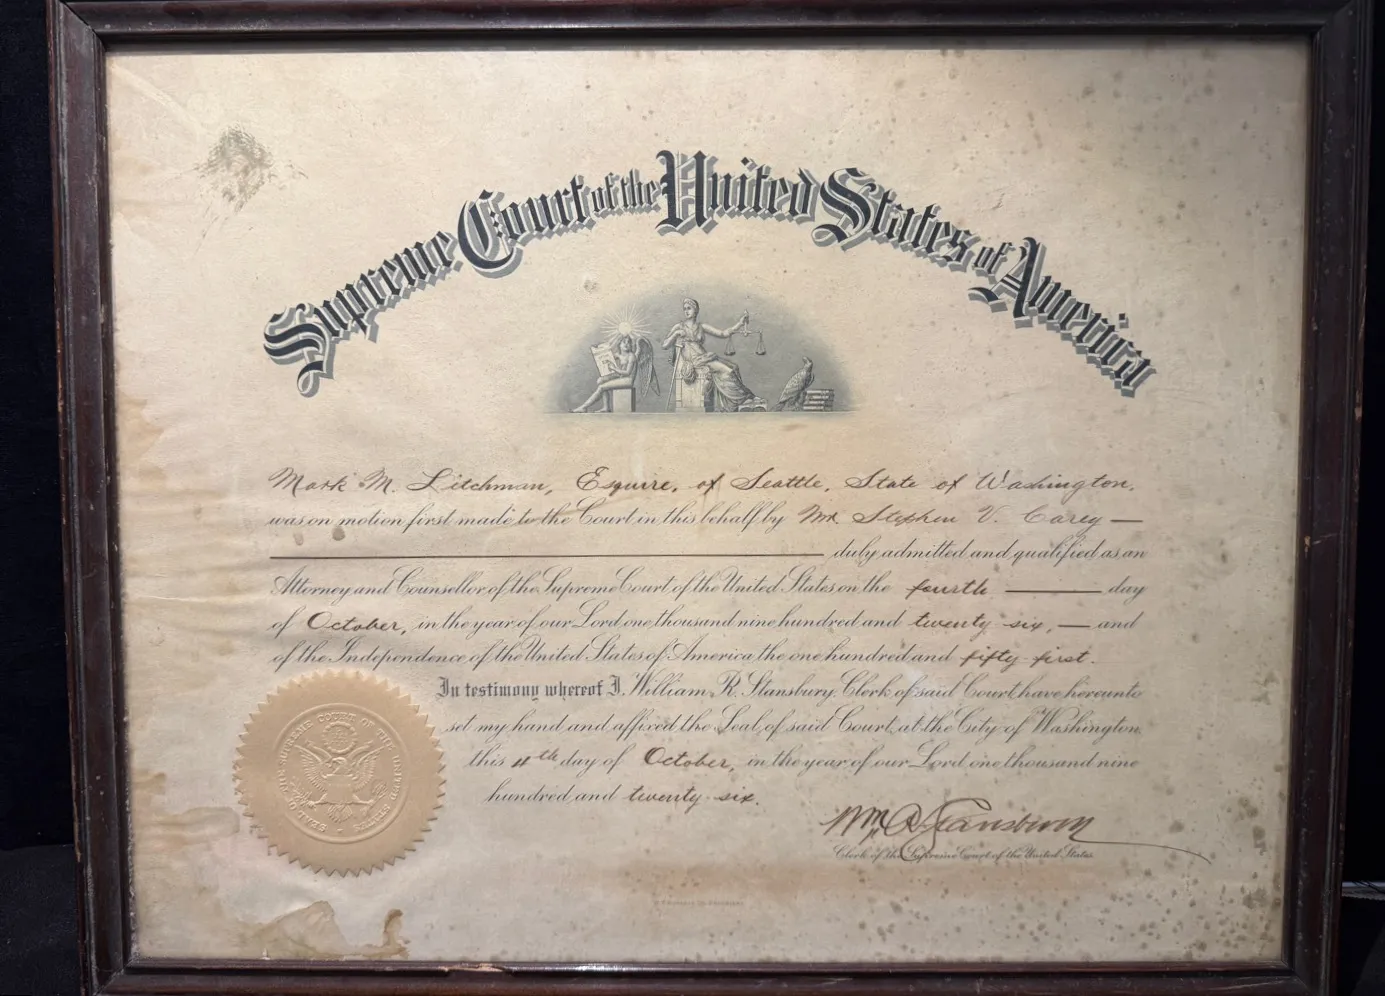 Supreme Court of the United States of America
Mark M. Litchman, Esquire, of Seattle, State of Washington,
was on motion first made to the Court in this behalf by Mr. Stephen V. Carey —
duly admitted and qualified as an
Attorney and Counsellor of the Supreme Court of the United States on the fourth — day
of October, in the year of our Lord one thousand nine hundred and twenty-six, — and
of the Independence of the United States of America the one hundred and fifty-first.
In testimony whereof I, William R. Stansbury, Clerk of said Court have hereunto
set my hand and affixed the Seal of said Court, at the City of Washington
this 4th day of October, in the year of our Lord one thousand nine
hundred and twenty-six.
SEAL OF THE SUPREME COURT OF THE UNITED STATES
Wm R. Stansbury
Clerk of the Supreme Court of the United States.